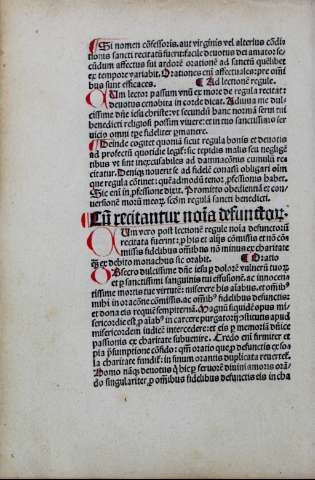 Si nomen cōfessoris aut virginis vel alterius cōdi⸗
tionis sancti recitatū fuerit: facile deuotus dei amator se⸗
cūdum affectus sui ardorē orationē ad sanctū quēlibet
ex tempore variabit. Orationes em̄ affectuales: pre omni⸗
bus sunt efficaces. ¶ Ad lectionē regule.
Cum lector passum vnū ex more de regula recitat:
deuotus cenobita in corde dicat. Adiuua me dul⸗
cissime dn̄e iesu christe: vt secundū hanc normā serui tui
benedicti religiosi possim viuere: et in tuo sanctissimo ser
uicio omni tpe fideliter pmanere.
Deinde cogitet quomā sicut regula bonis et deuotis
ad profectū quotidie legit̄: sic tepidis malis seu negligē
tibus vt sint inexcusabiles ad damnacōnis cumulū reci
citatur. Deniq̄ nouerit se ad fidelē consilij obligari oīm
que regula cōtinet: queādmodū tenor pfessionis habet.
Sic em̄ in pfessione dixit. Promitto obedientiā et con⸗
uersionē morū meoꝝ scdm regulā sancti benedicti.
Cū recitantur noīa defunctoꝝ.
Cum vero post lectionē regule noīa defunctorū
recitata fuerint: p his et alijs cōmissis et nō cōm
missis fidelibus omībus nō minus ex charitate
q̄ ex debito monachus sic orabit. ¶ Oratio
Offero dulcissime dn̄e iesu p dolorē vulnerū tuoꝝ
et p sanctissimi sanguinis tui effusionē: ac innocen⸗
tissime mortis tue virtutē: miserere his aīabus: et omībꝰ
mihi in oracōne cōmissis: ac omībꝰ fidelibus defunctis:
et dona eis requiē sempiternā. Magnū siquidē opus mi⸗
sericordie est: p aīabꝰ in carcere purgatorij
misericordem iudicē intercedere: et eis p memoriā
passionis ex charitate subuenire. Credo em̄ firmiter et
pia psumptione cōfido: qm̄ oratio que p defunctis ex so⸗
la charitate fundit̄: in sinum orantis duplicata reuertet̄.
Homo nāq̄ deuotus q̄ hic p feruorē diuini amoris orā⸗
do singulariter p omībus fidelibus defunctis eis in cha